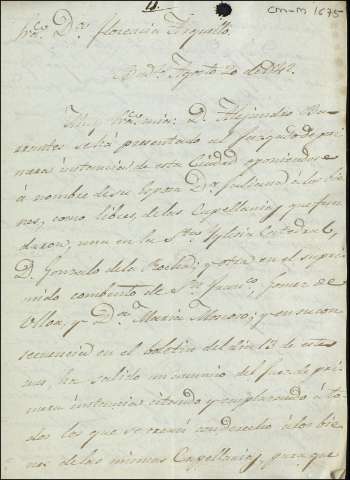 CM-M 1675
Sra. Da. florencia Arguello.
Badz. Agosto 20 de 1842.
Muy Sra. mia: D. Alejandro Ba-
rrantes se há presentado al juzgado de pri-
mera instancia de esta Ciudad oponiendose
á nombre de su Esposa Da. Juliana á los bie-
nes, como libres, de las Capellanias que fun-
daron, una en la Sta. Yglesia Catedral,
D. Gonzalo de la Rocha; y otra en el supri-
mido combento de Sn. Franco., Gomez de
Olloa, y Da. Maria Moscoso; y en su con-
secuencia en el boletin del dia 13 de este
mes, ha salido un anuncio del juez de pri-
mera instancia citando y emplazando á to-
dos los que se crean con derecho á los bie-
nes de las mismas Capellanias, para que